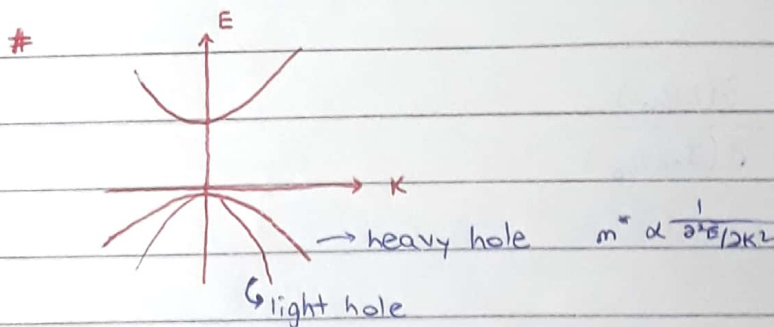 #
E
K
→ heavy hole m* ∝ 1 / ∂²E/∂K²
↳ light hole